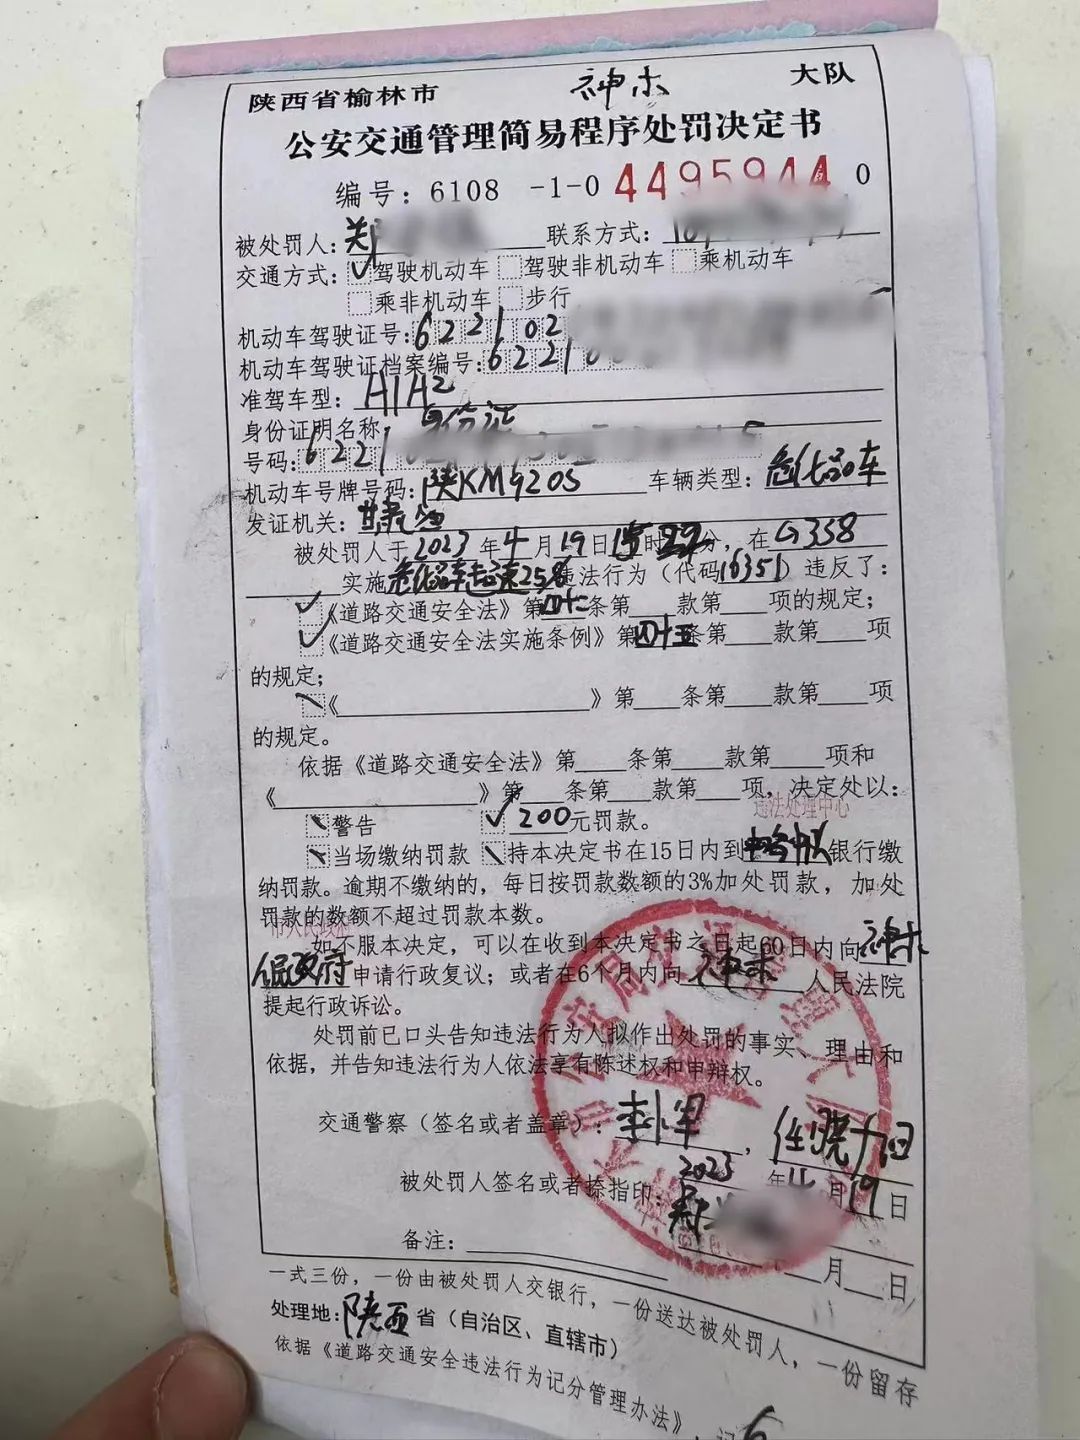 陕西省榆林市 神木 大队
公安交通管理简易程序处罚决定书
编号：6108 -1-0 4495944 0
被处罚人：郑 联系方式：
交通方式：驾驶机动车 驾驶非机动车 乘机动车
乘非机动车 步行
机动车驾驶证号：622102
机动车驾驶证档案编号：6221
准驾车型：A1A2
身份证明名称：身份证
号码：6221
机动车号牌号码：陕KM9205 车辆类型：危化品车
发证机关：甘肃
被处罚人于2023年4月19日15时 分，在G358
实施危化品车超速25%违法行为（代码16351）违反了：
《道路交通安全法》第四十二条第 款第 项的规定；
《道路交通安全法实施条例》第四十五条第 款第 项
的规定；
《 》第 条第 款第 项
的规定。
依据《道路交通安全法》第 条第 款第 项和
《 》第 条第 款第 项，决定处以：
违法处理中心
警告 200元罚款。
当场缴纳罚款 持本决定书在15日内到 银行缴
纳罚款。逾期不缴纳的，每日按罚款数额的3%加处罚款，加处
罚款的数额不超过罚款本数。
市人民政府
如不服本决定，可以在收到本决定书之日起60日内向神木
人民政府申请行政复议；或者在6个月内向神木人民法院
提起行政诉讼。
处罚前已口头告知违法行为人拟作出处罚的事实、理由和
依据，并告知违法行为人依法享有陈述权和申辩权。
交通警察（签名或者盖章）：李小军，任晓
2023年4月19日
被处罚人签名或者捺指印：
月 日
备注：
一式三份，一份由被处罚人交银行，一份送达被处罚人，一份留存
处理地：陕西省（自治区、直辖市）
依据《道路交通安全违法行为记分管理办法》，记6